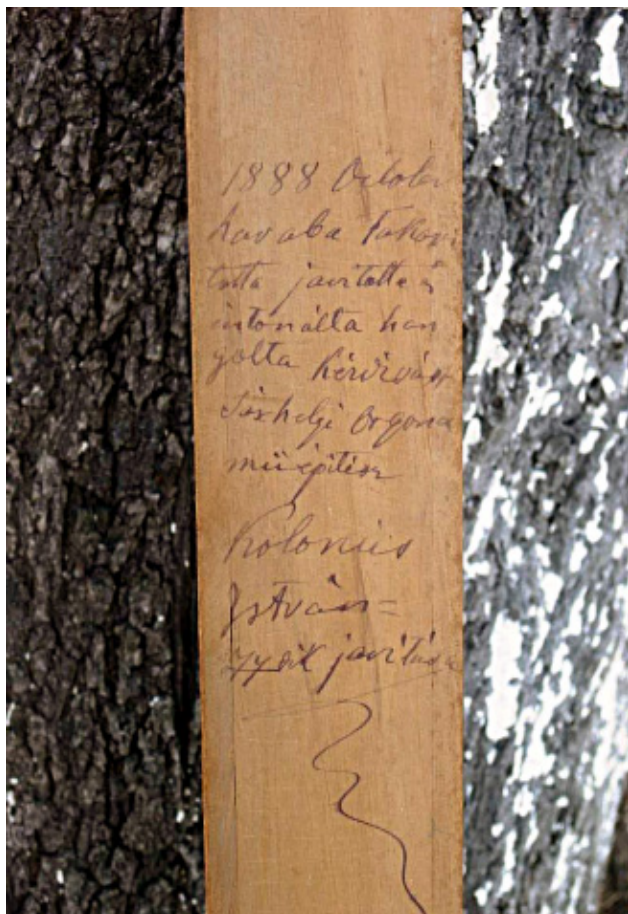 1888 October
havába Takari
totta javitotta és
intonálta han
golta Kézdivásár
Oszhelyi Orgona
müépitész
Kolonics
István=
77dik javitása